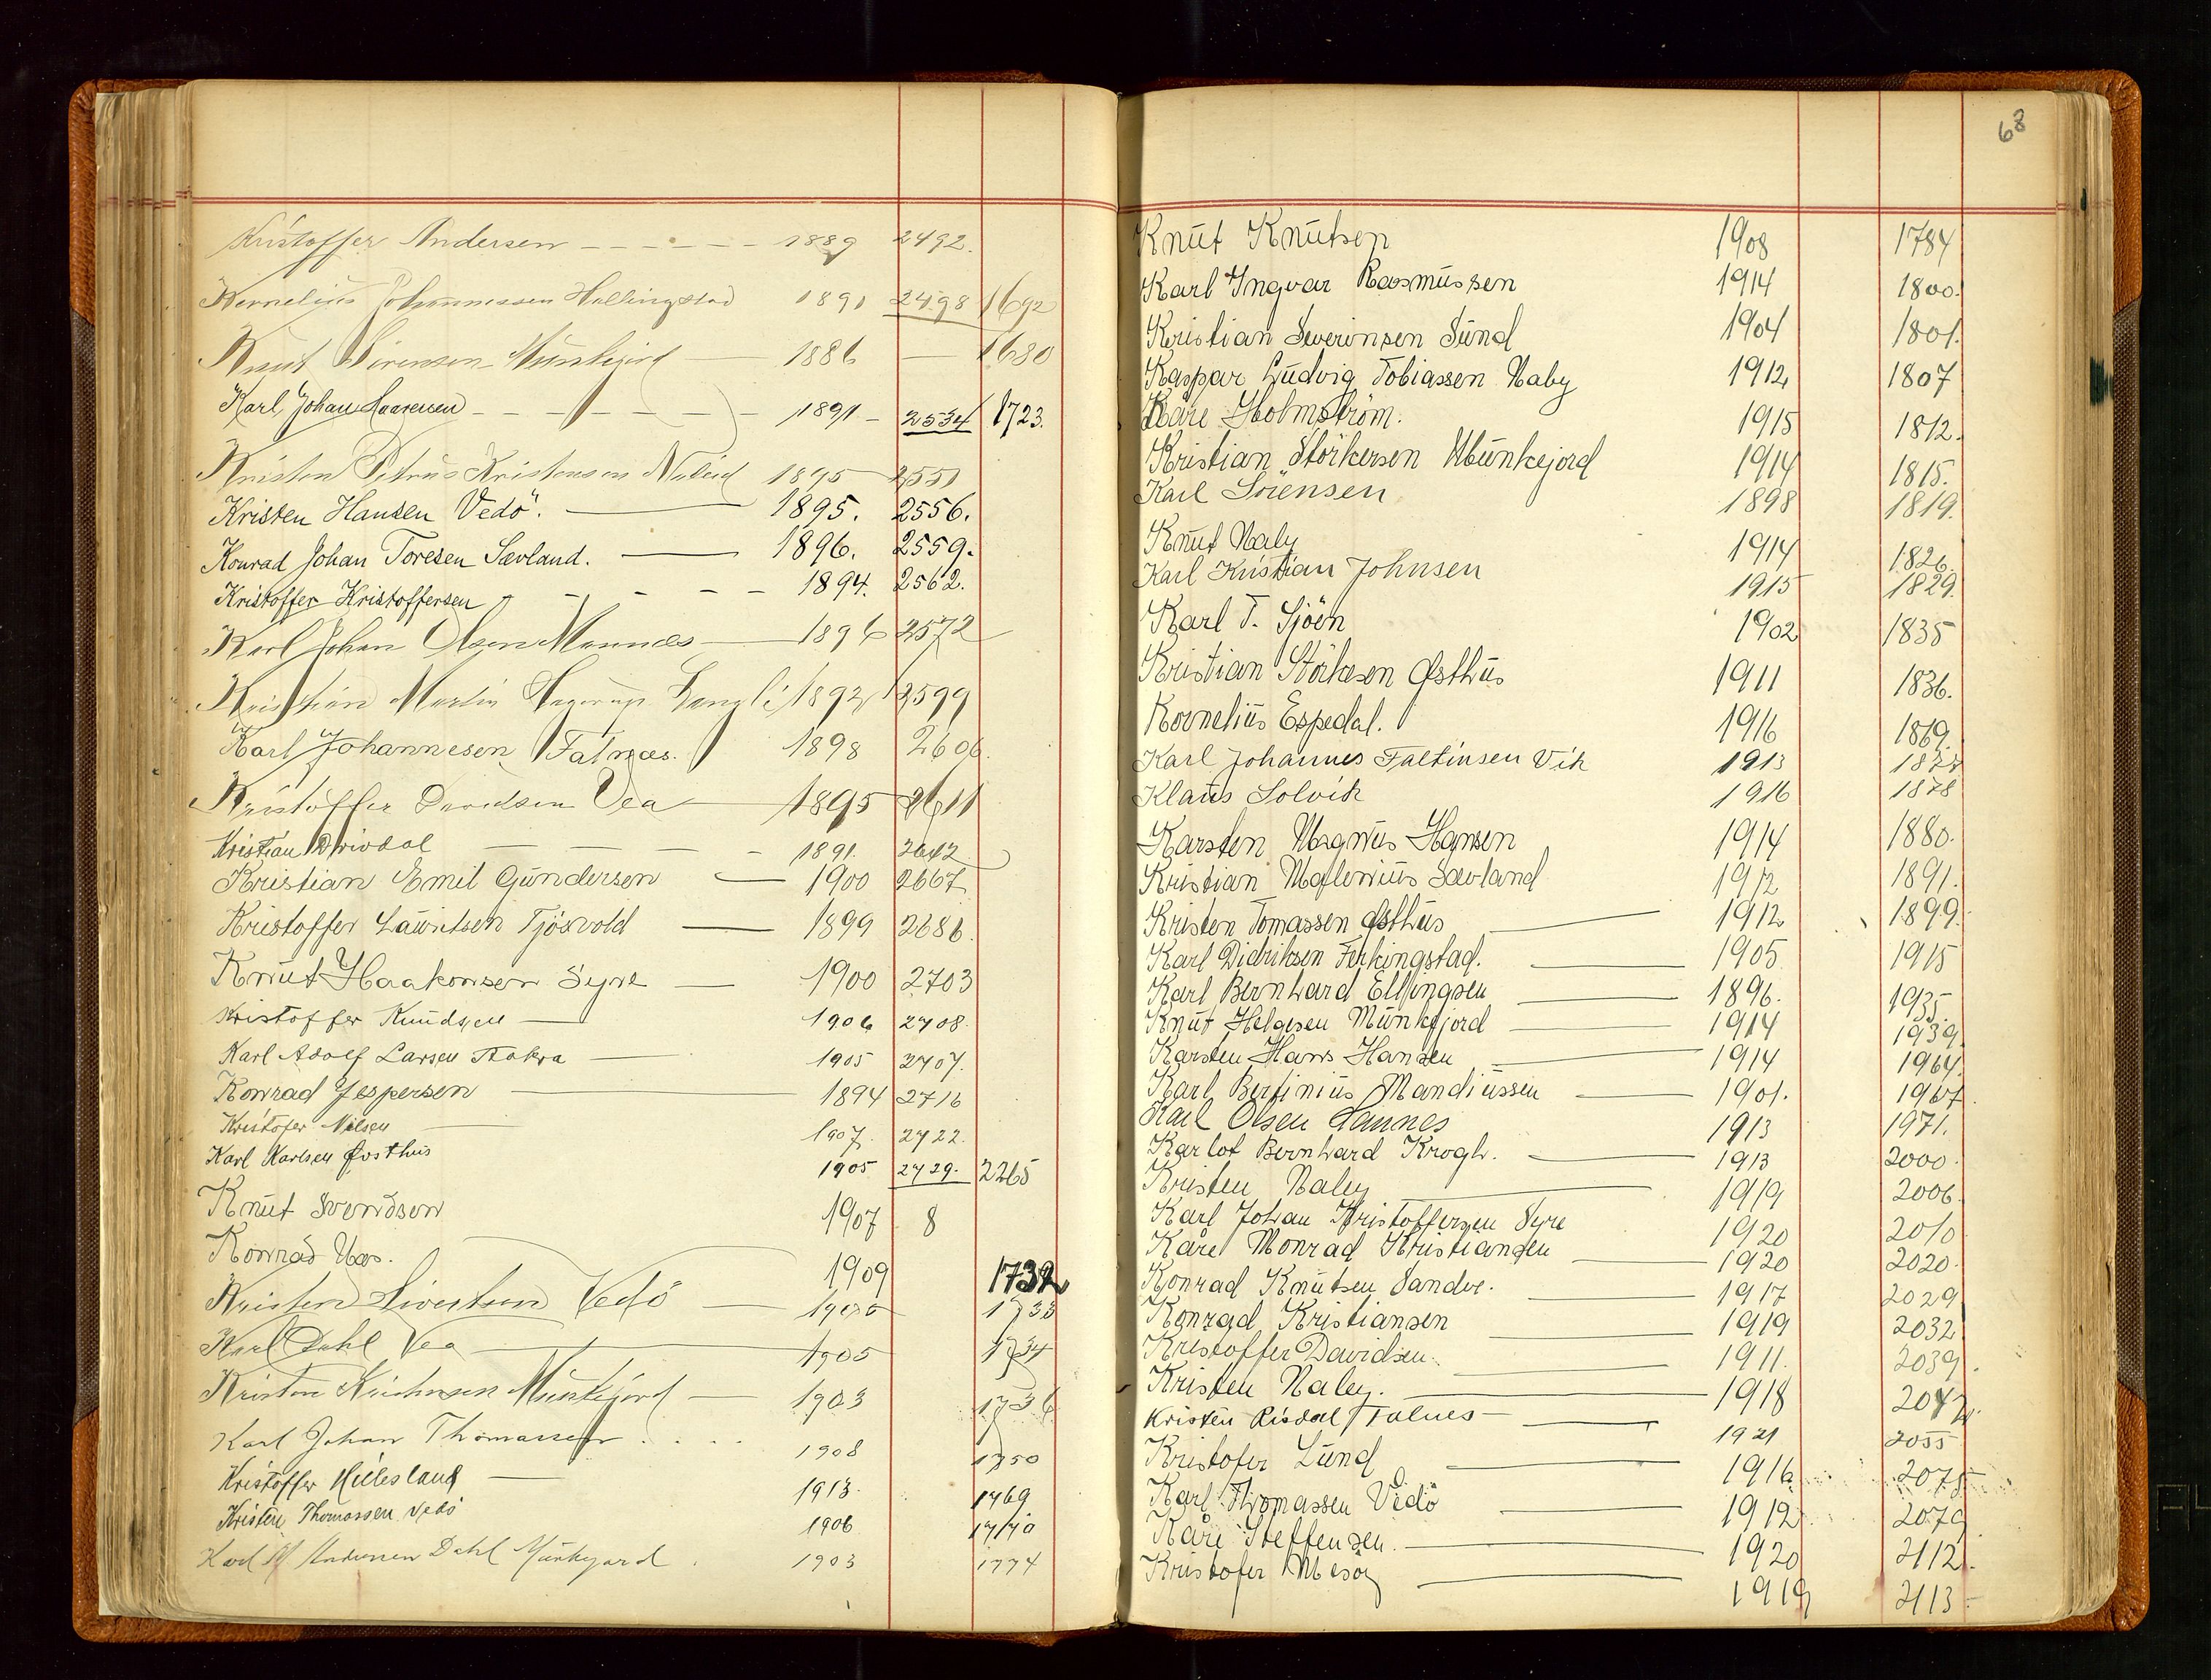 Kristoffer Andersen 1889 2492.
Kornelius Johannessen Hallingstad 1891 2498 1692
Knut Sørensen Munkejord 1886 — 1680
Karl Johan 1891 2534 1723.
Kristen Petrus Kristensen 1895 2551
Kristen Hansen Vedö. 1895. 2556.
Konrad Johan Toresen Sævland. 1896. 2559.
Kristoffer Kristoffersen 1894. 2562.
Karl Johan Olsen Mannes 1896 2572
Kristian Martin 1892 2599
Karl Johannesen Falnæs. 1898 2606.
Kristoffer Davidsen Vea 1895 2611
Kristian Drivdal 1891. 2642
Kristian Emil Gündersen 1900 2667
Kristoffer Lauritsen Tjösvold 1899 2686.
Knüt Haakonsen Syre 1900 2703
Kristoffer Knüdsen 1906 2708.
Karl Adolf Larsen Aakra 1905 2707.
Konrad Jespersen 1894 2716
Kristofer Nilsen 1907. 2722.
Karl Karlsen Østhus 1905 2729. 2265
Knüt Svendsen 1907 8
Konrad Næs. 1909 1732
Kristen Sivertsen Vedö 1733
Karl Dahl Vea 1905 1734
Kristen Kristensen Münkejord 1903 1736
Karl Johan Thomassen 1908 1750
Kristoffer Hillesland 1913. 1769
Kristen Thomassen Vedö 1906 1770
Karl Andersen Dahl Münkejord 1903 1774
68
Knüt Knütsen 1908 1784
Karl Ingvar Rasmüssen 1914 1800.
Kristian Severinsen Sünd 1904 1801.
Kaspar Lüdvig Tobiassen Naley 1912 1807
Kåre Holmström. 1915 1812.
Kristian Störkersen Münkejord 1914 1815.
Karl Sörensen 1898 1819.
Knüt Naley 1914 1826.
Karl Kristian Johnsen 1915 1829.
Karl T. Sjöen 1902 1835
Kristian Störksen Østhüs 1911 1836.
Kornelius Espedal. 1916 1869.
Karl Johannes Faltinsen Vik 1913
Klaüs Solvik 1916 1878
Karsten Magnüs Hansen 1914 1880.
Kristian Maleniüs Sævland 1912 1891.
Kristen Tomassen Østhüs 1912 1899.
Karl Didriksen Ferkingstad. 1905 1915
Karl Bernhard Ellingsen 1896. 1935.
Knüt Helgesen Münkejord 1914 1939.
Karsten Hans Hansen 1914 1964.
Karl Bertiniüs Mandiüssen 1901. 1967.
Karl Olsen Sannes 1913 1971.
Karlot Bernhard Krogh. 1913 2000.
Kristen Naley 1919 2006.
Karl Johan Kristoffersen Syre 1920 2010
Kåre Monrad Kristiansen 1920 2020.
Konrad Knütsen Sandve. 1917 2029
Konrad Kristiansen 1919 2032
Kristoffer Davidsen. 1911. 2039.
Kristen Naley. 1918
Kristen Risdal Falnes 1921 2055
Kristofer Lünd 1916 2075
Karl Thomassen Vedö 1912 2079
Kåre Steffensen. 1920 2112.
Kristofer Mesöy 1919 2113